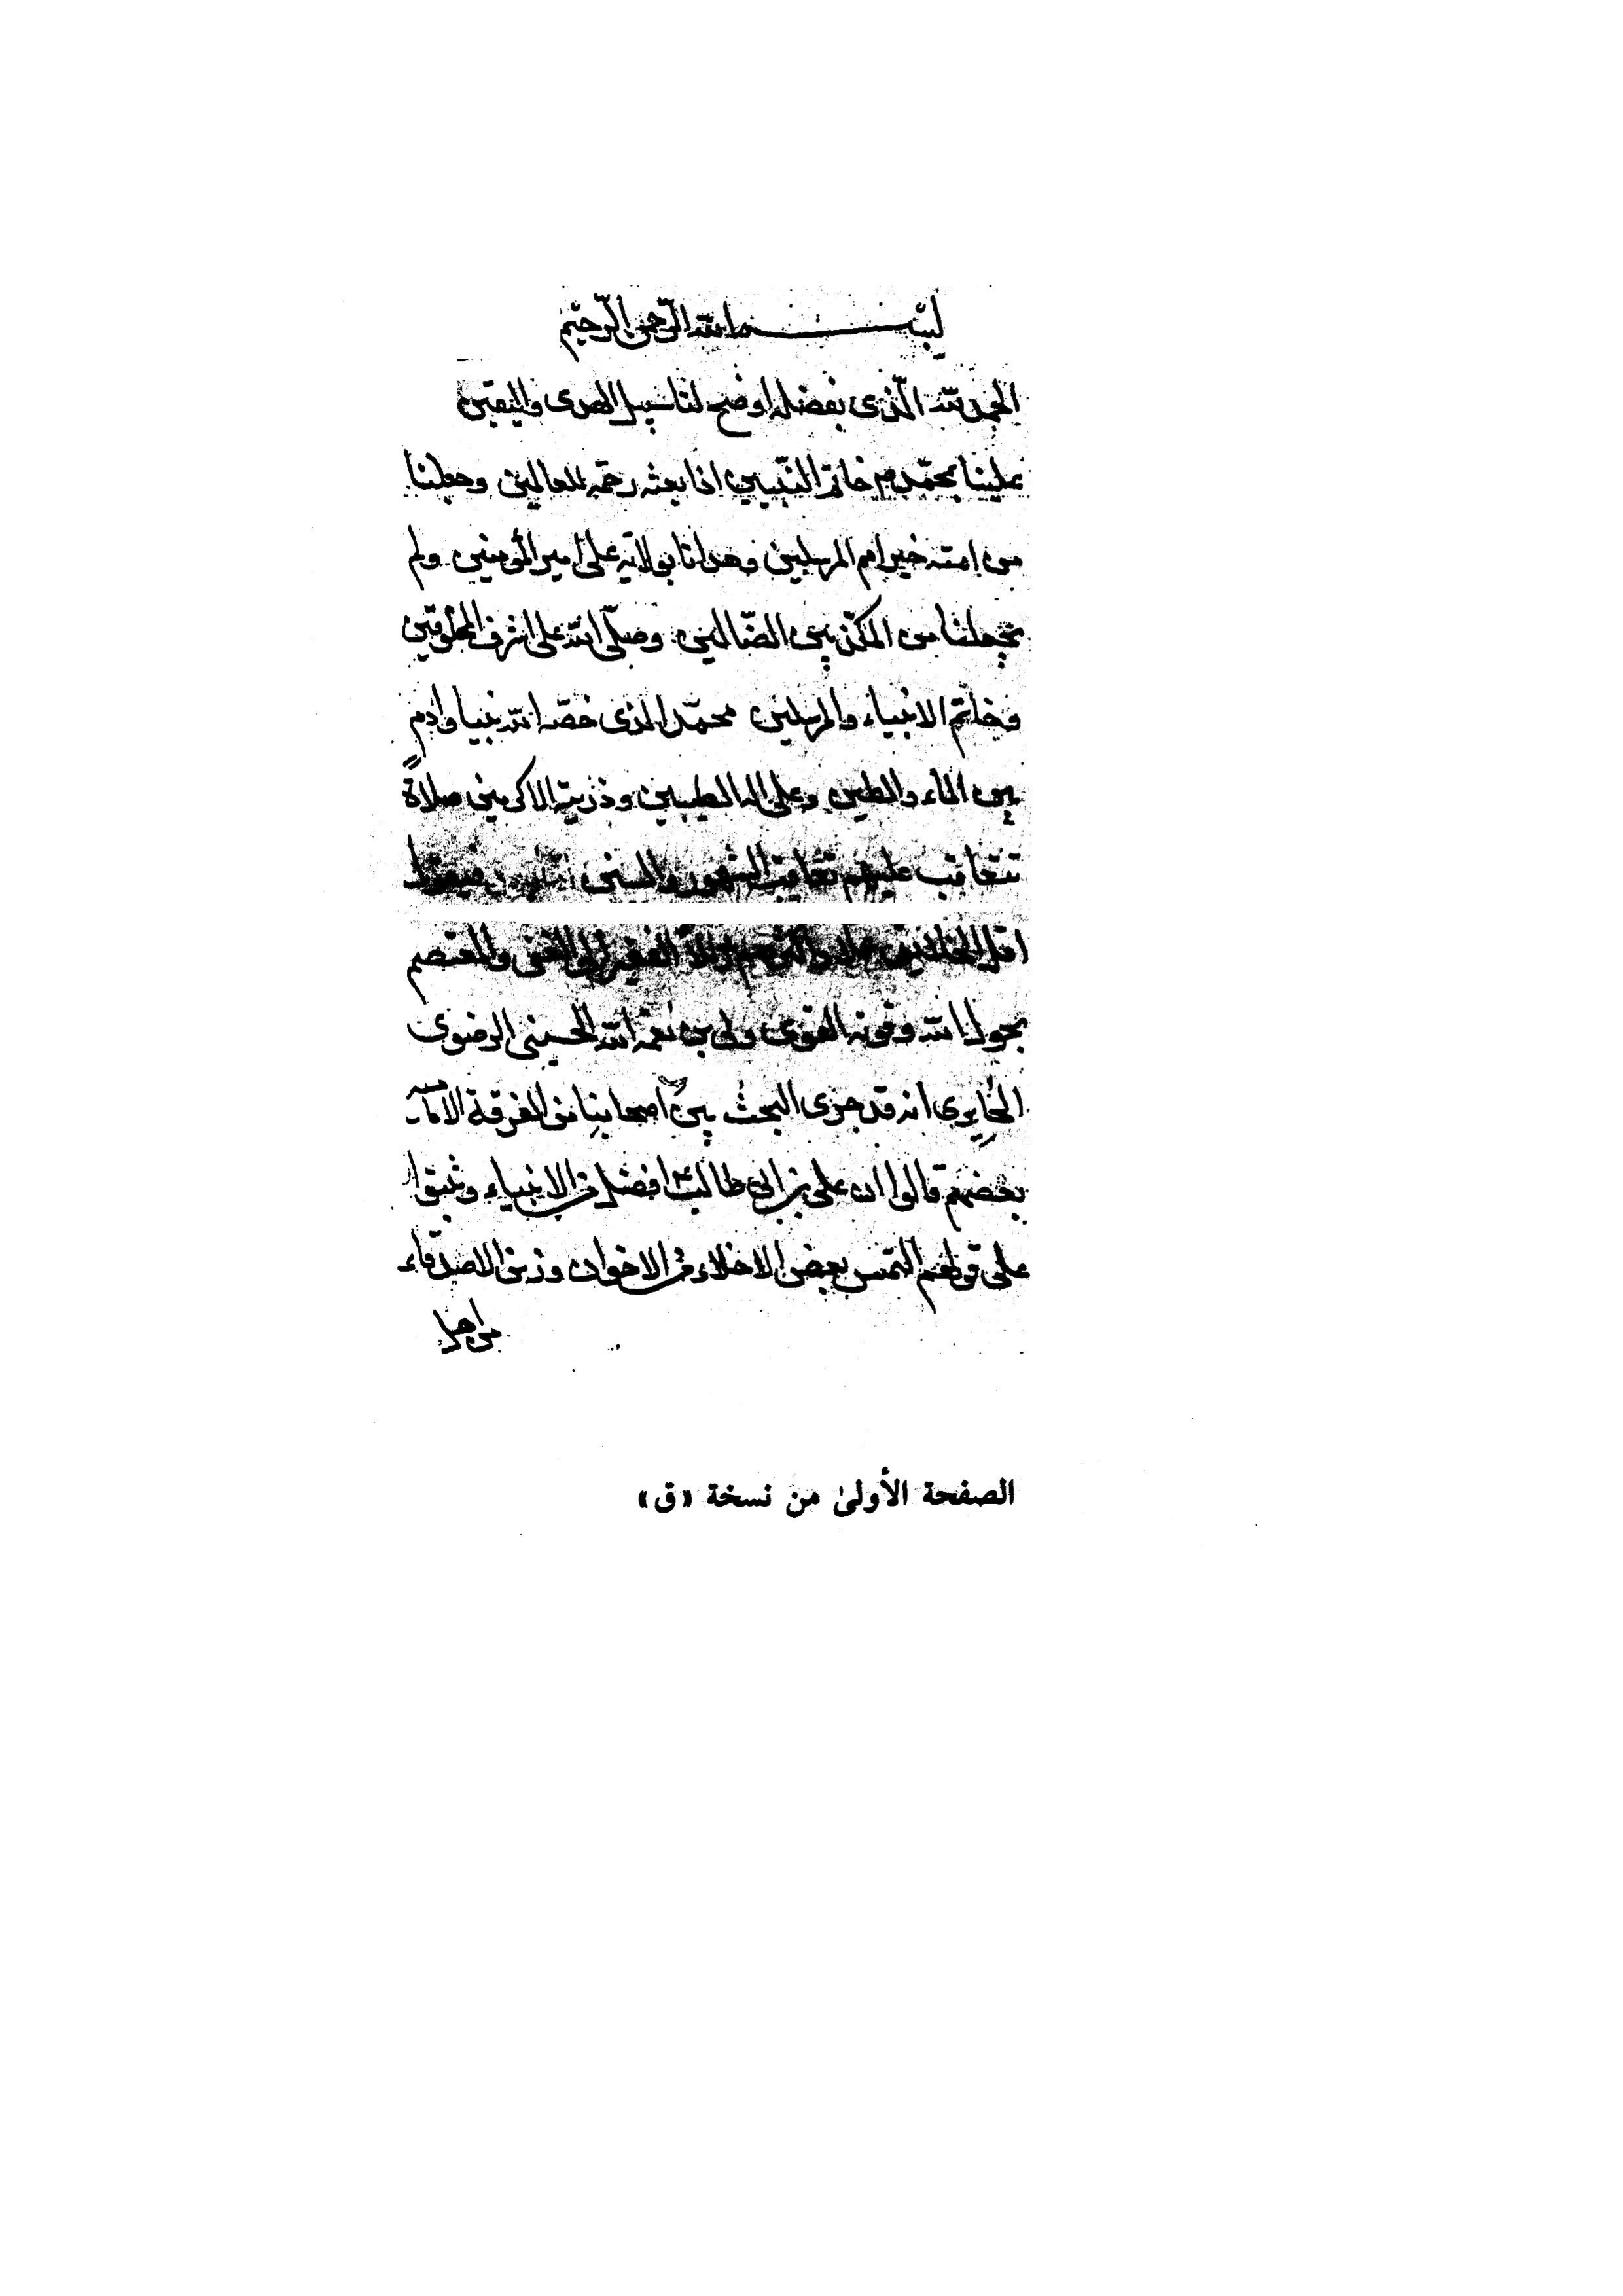 بسم الله الرحمن الرحيم
الحمد لله الذى بفضله اوضح لنا سبيل الهدى واليقين
علينا بمحمد خاتم النبيين اذا بعثه رحمة للعالمين وجعلنا
من امته خير امم المرسلين وهدانا بولاية على امير المؤمنين ولم
يجعلنا من المكذبين الضالين وصلّى الله على اشرف المخلوقين
وخاتم الانبياء والمرسلين محمّد الذى خصّه الله نبيا وادم
بين الماء والطين وعلى اله الطيبين وذريته الاكرمين صلاةً
تتعاقب عليهم تعاقب الشهور والسنين فيقول
اقل الفقير الى الغنى والمعتصم
بحول الله وقوته القوى ولى بن نعمة الله الحسينى الرضوى
الحايرى انه قد جرى البحث بين اصحابنا من الفرقة الامامية
بعضهم قالوا ان على بن ابى طالب افضل من الانبياء وثبتوا
على قولهم التمس بعض الاخلاء من الاخوان وزين الاصدقاء
من اجل
الصفحة الأولىٰ من نسخة «ق»